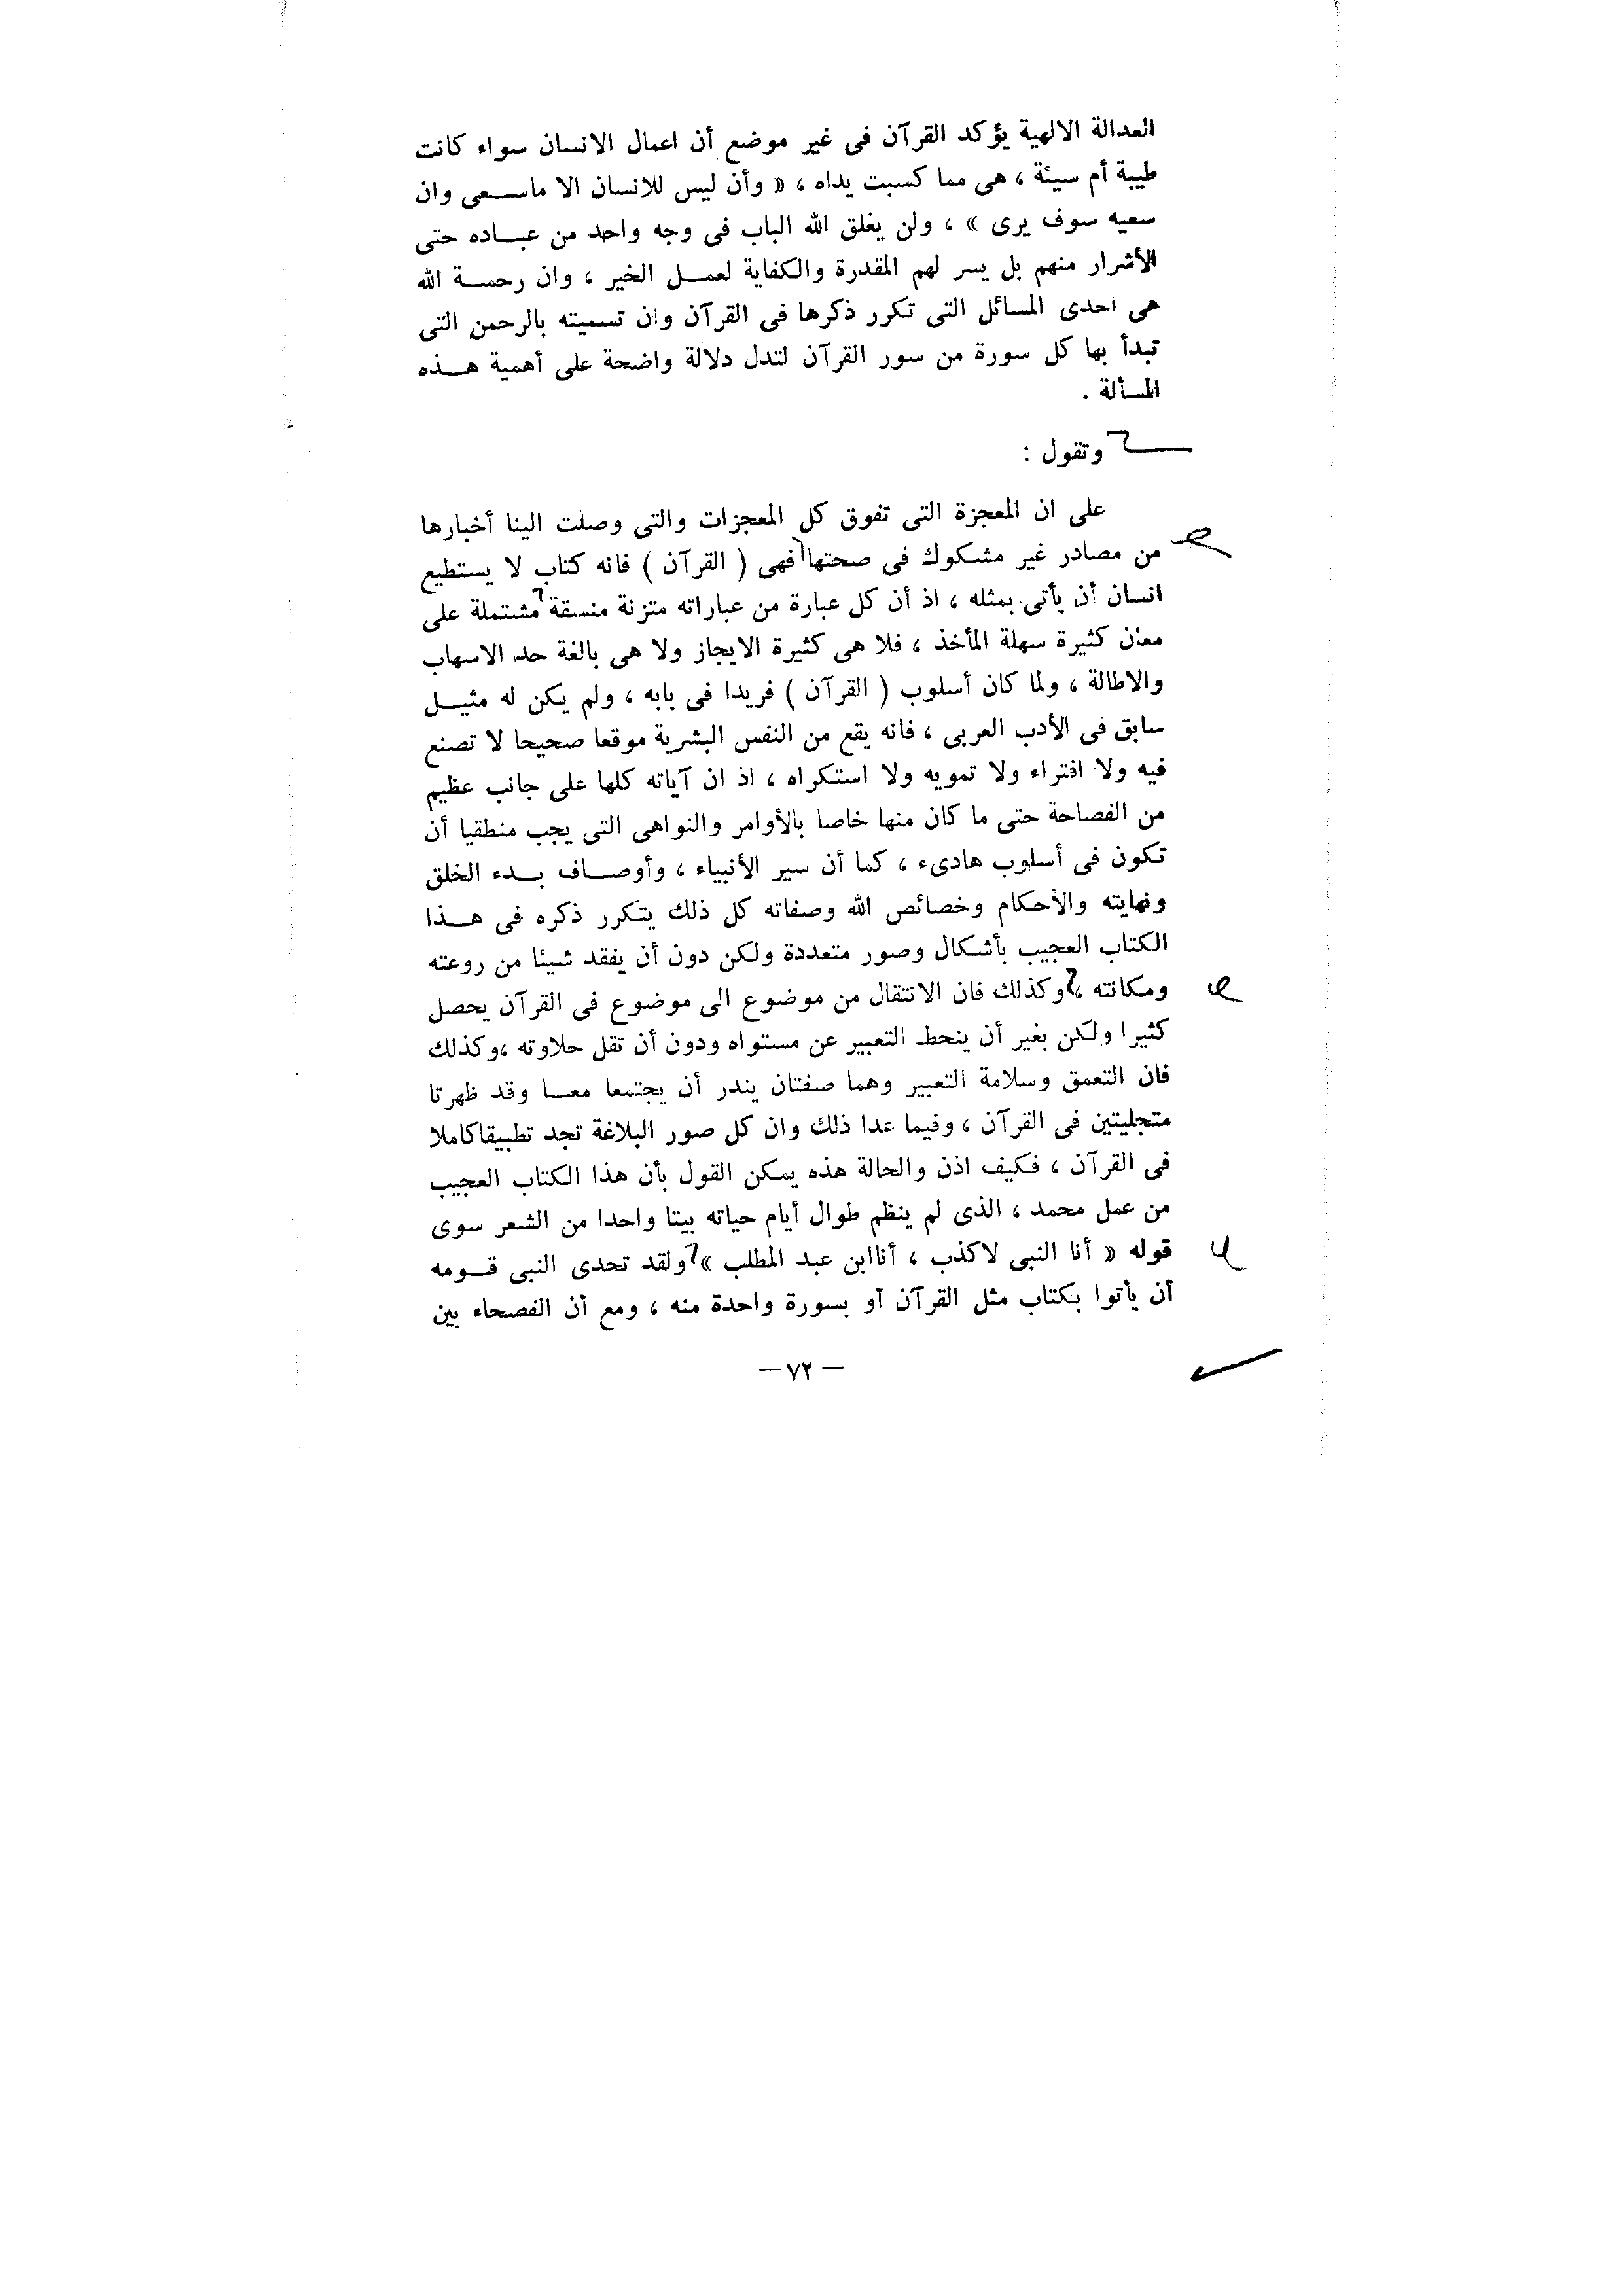 العدالة الالهية يؤكد القرآن فى غير موضع أن اعمال الانسان سواء كانت
طيبة أم سيئة ، هى مما كسبت يداه ، « وأن ليس للانسان الا ماسعى وان
سعيه سوف يرى » ، ولن يغلق الله الباب فى وجه واحد من عباده حتى
الأشرار منهم بل يسر لهم المقدرة والكفاية لعمل الخير ، وان رحمة الله
هى احدى المسائل التى تكرر ذكرها فى القرآن وان تسميته بالرحمن التى
تبدأ بها كل سورة من سور القرآن لتدل دلالة واضحة على أهمية هذه
المسألة .
وتقول :
على ان المعجزة التى تفوق كل المعجزات والتى وصلت الينا أخبارها
من مصادر غير مشكوك فى صحتها فهى ( القرآن ) فانه كتاب لا يستطيع
انسان أن يأتى بمثله ، اذ أن كل عبارة من عباراته متزنة منسقة مشتملة على
معان كثيرة سهلة المأخذ ، فلا هى كثيرة الايجاز ولا هى بالغة حد الاسهاب
والاطالة ، ولما كان أسلوب ( القرآن ) فريدا فى بابه ، ولم يكن له مثيل
سابق فى الأدب العربى ، فانه يقع من النفس البشرية موقعا صحيحا لا تصنع
فيه ولا افتراء ولا تمويه ولا استكراه ، اذ ان آياته كلها على جانب عظيم
من الفصاحة حتى ما كان منها خاصا بالأوامر والنواهى التى يجب منطقيا أن
تكون فى أسلوب هادىء ، كما أن سير الأنبياء ، وأوصاف بدء الخلق
ونهايته والأحكام وخصائص الله وصفاته كل ذلك يتكرر ذكره فى هذا
الكتاب العجيب بأشكال وصور متعددة ولكن دون أن يفقد شيئا من روعته
ومكانته ، وكذلك فان الانتقال من موضوع الى موضوع فى القرآن يحصل
كثيرا ولكن بغير أن ينحط التعبير عن مستواه ودون أن تقل حلاوته ،وكذلك
فان التعمق وسلامة التعبير وهما صفتان يندر أن يجتمعا معا وقد ظهرتا
متجليتين فى القرآن ، وفيما عدا ذلك وان كل صور البلاغة تجد تطبيقاكاملا
فى القرآن ، فكيف اذن والحالة هذه يمكن القول بأن هذا الكتاب العجيب
من عمل محمد ، الذى لم ينظم طوال أيام حياته بيتا واحدا من الشعر سوى
قوله « أنا النبى لاكذب ، أناابن عبد المطلب » ولقد تحدى النبى قومه
أن يأتوا بكتاب مثل القرآن أو بسورة واحدة منه ، ومع أن الفصحاء بين
— ٧٢ —